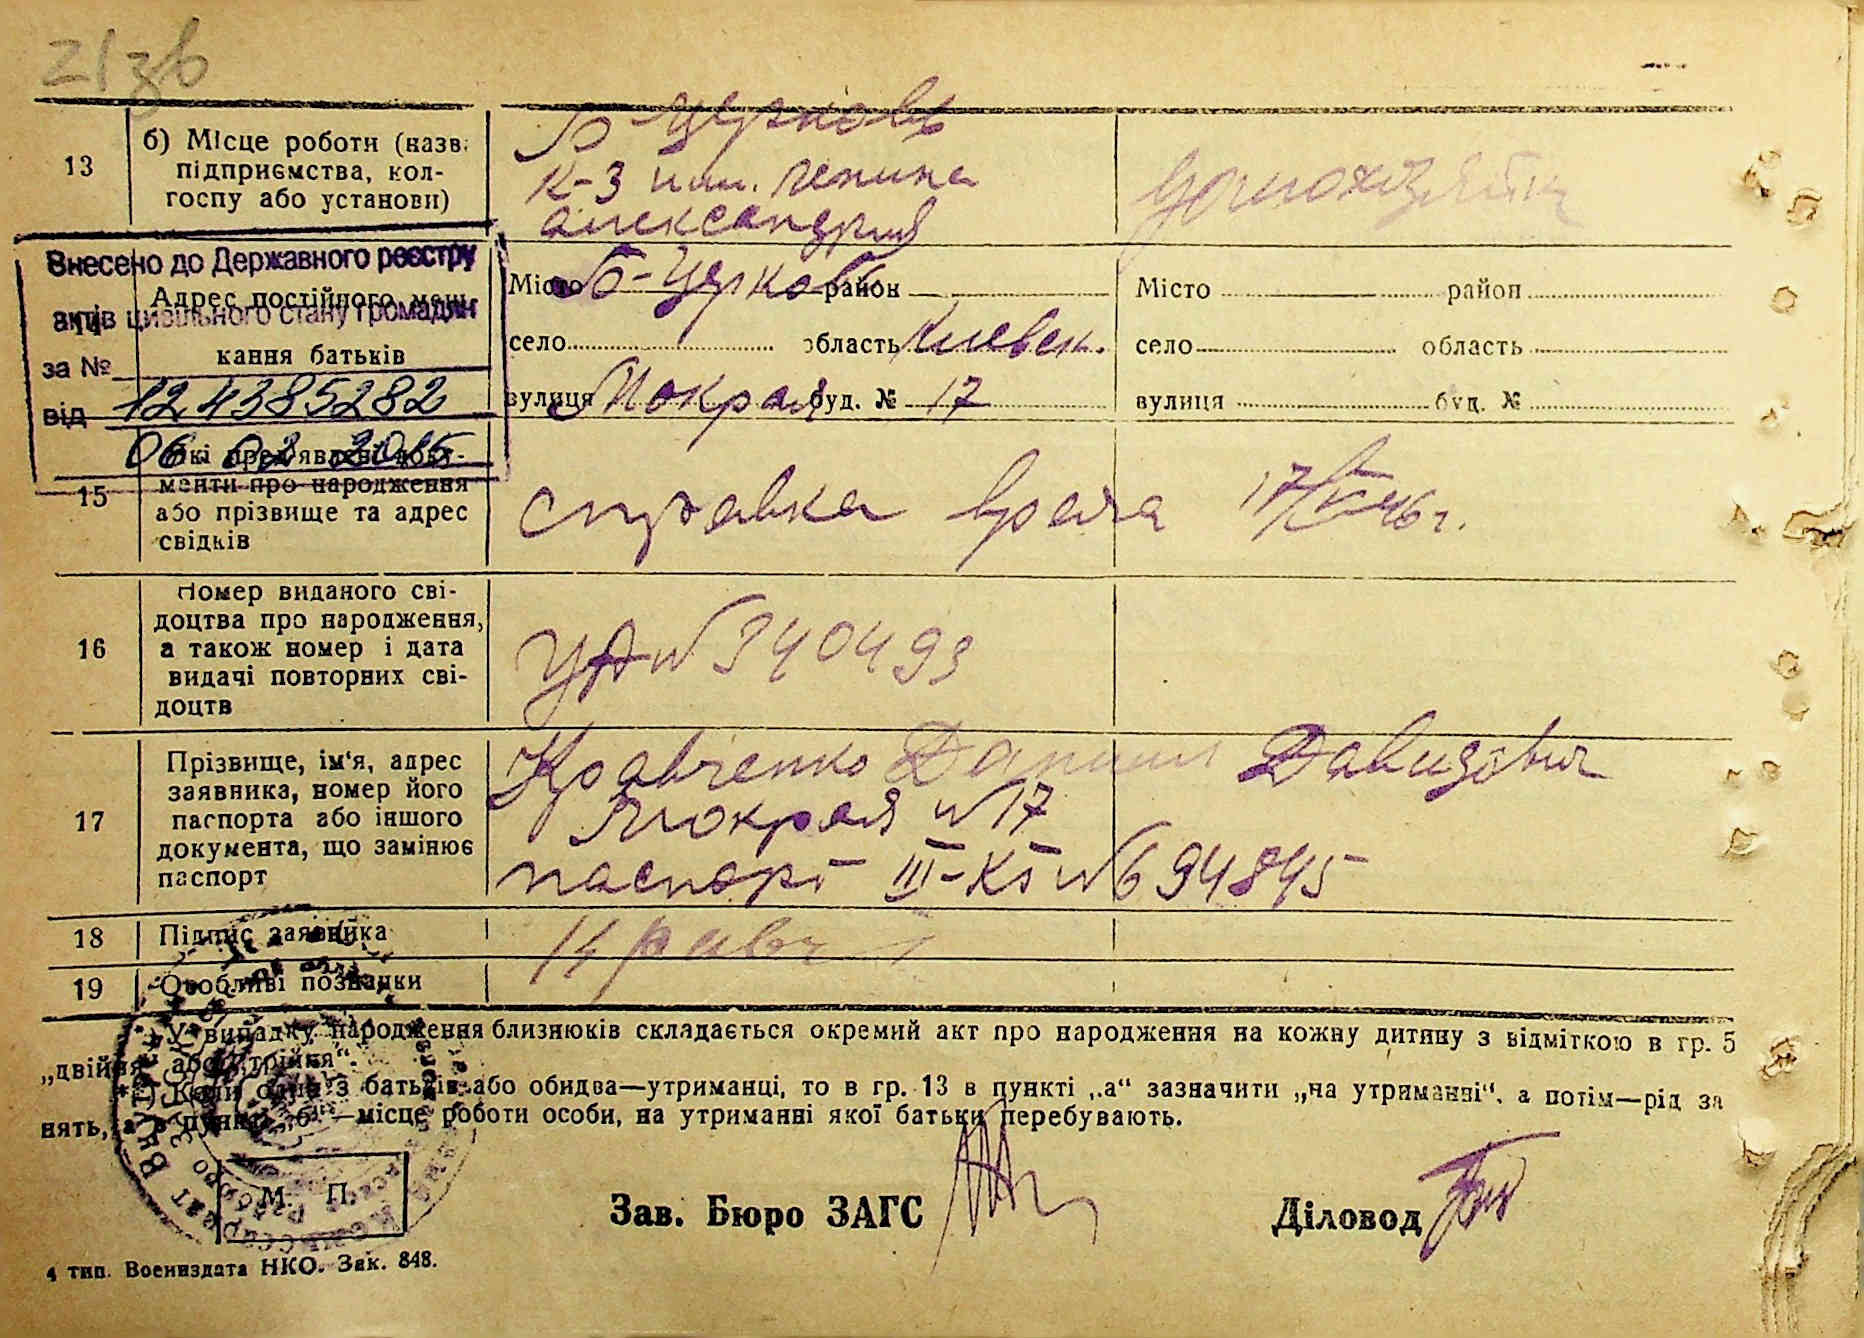 21зв
13
б) Місце роботи (назв.
підприємства, кол-
госпу або установи)
Б Церковь
К-З им. Ленина
Александрия
Домохозяйка
Внесено до Державного реєстру
актів цивільного стану громадян
за №
12 4385282
від
06 02 2015
14
Адрес постійного меш-
кання батьків
Місто Б-Церковь район
село область Киевск.
вулиця Мокрая буд. № 17
Місто район
село область
вулиця буд. №
15
Які пред'явлені доку-
менти про народження
або прізвище та адрес
свідків
справка врача 17/V 46 г.
16
Номер виданого сві-
доцтва про народження,
а також номер і дата
видачі повторних сві-
доцтв
УА № 340493
17
Прізвище, ім'я, адрес
заявника, номер його
паспорта або іншого
документа, що замінює
паспорт
Кравченко Даниил Давидович
Мокрая №17
паспорт III-КЯ № 694845
18
Підпис заявника
Кравч
19
Особливі познанки
* У випадку народження близнюків складається окремий акт про народження на кожну дитину з відміткою в гр. 5
„двійня" або „трійня".
* Коли один з батьків або обидва—утриманці, то в гр. 13 в пункті „а" зазначити „на утриманні", а потім—рід за
нять, а в пункті „б"—місце роботи особи, на утриманні якої батьки перебувають.
М. П.
Зав. Бюро ЗАГС
Діловод
4 тип. Воениздата НКО. Зак. 848.